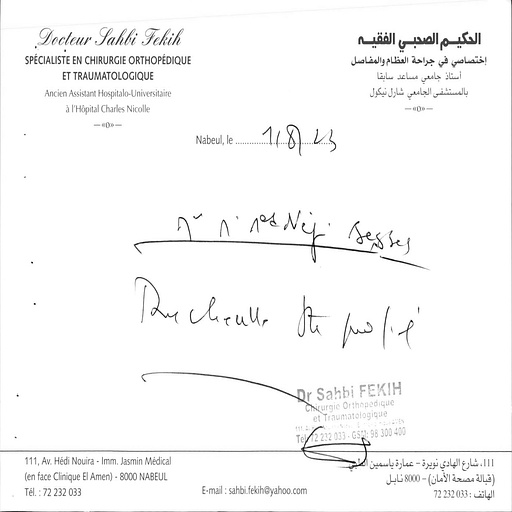 Docteur Sahbi Fekih
SPÉCIALISTE EN CHIRURGIE ORTHOPÉDIQUE
ET TRAUMATOLOGIQUE
Ancien Assistant Hospitalo-Universitaire
à l'Hôpital Charles Nicolle
الحكيم الصحبي الفقيه
إختصاصي في جراحة العظام والمفاصل
أستاذ جامعي مساعد سابقا
بالمستشفى الجامعي شارل نيكول
Nabeul, le 1/8/23
Dr Sahbi FEKIH
Chirurgie Orthopédique
et Traumatologique
Tél: 72 232 033 - GSM: 98 300 400
111, Av. Hédi Nouira - Imm. Jasmin Médical
(en face Clinique El Amen) - 8000 NABEUL
Tél. : 72 232 033
E-mail : sahbi.fekih@yahoo.com
111، شارع الهادي نويرة - عمارة ياسمين الطبي
(قبالة مصحة الأمان) - 8000 نابل
الهاتف : 72 232 033